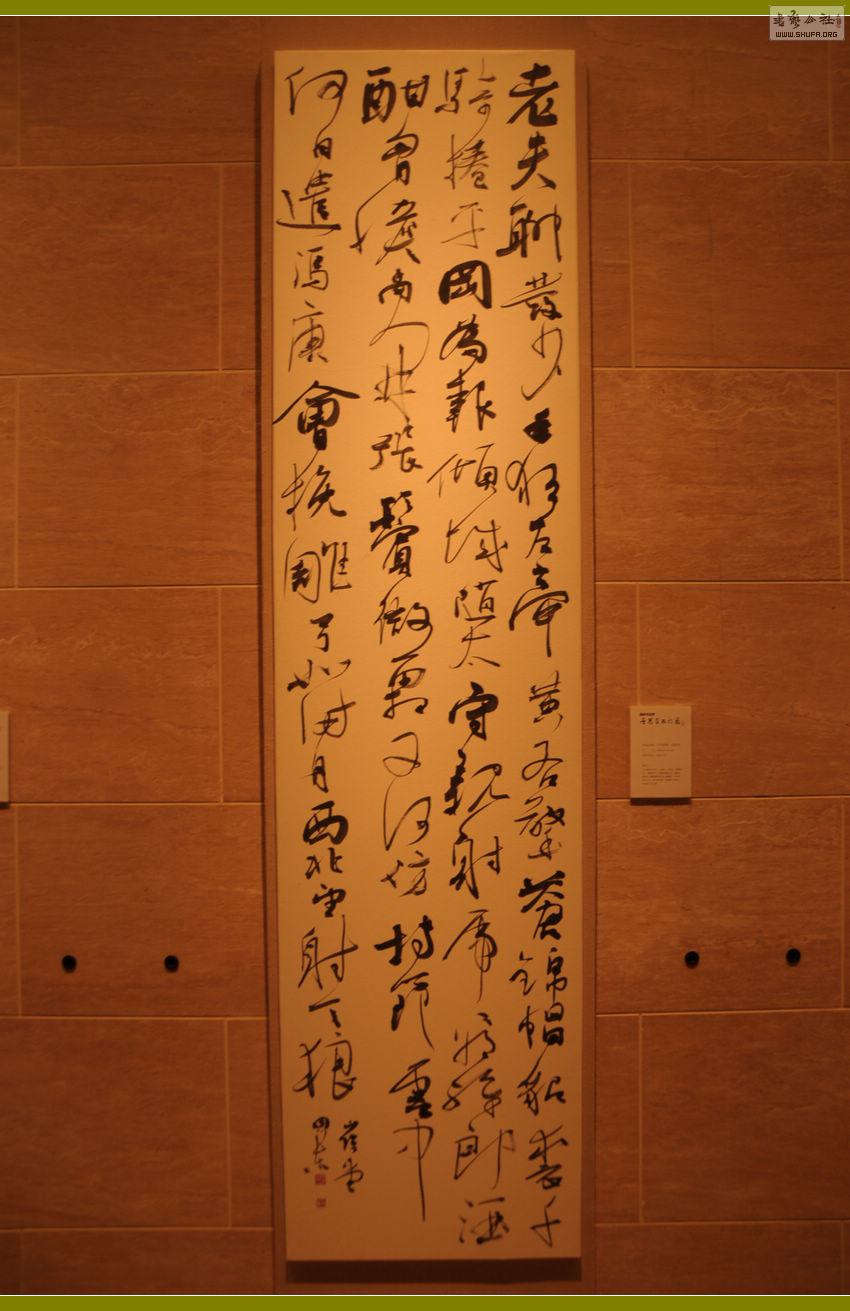 老夫聊發少年狂左牽黃右擎蒼錦帽貂裘千
騎捲平岡為報傾城隨太守親射虎看孫郎酒
酣胸膽尚開張鬢微霜又何妨持節雲中
何日遣馮唐會挽雕弓如滿月西北望射天狼
書藝公社
WWW.SHUFA.ORG